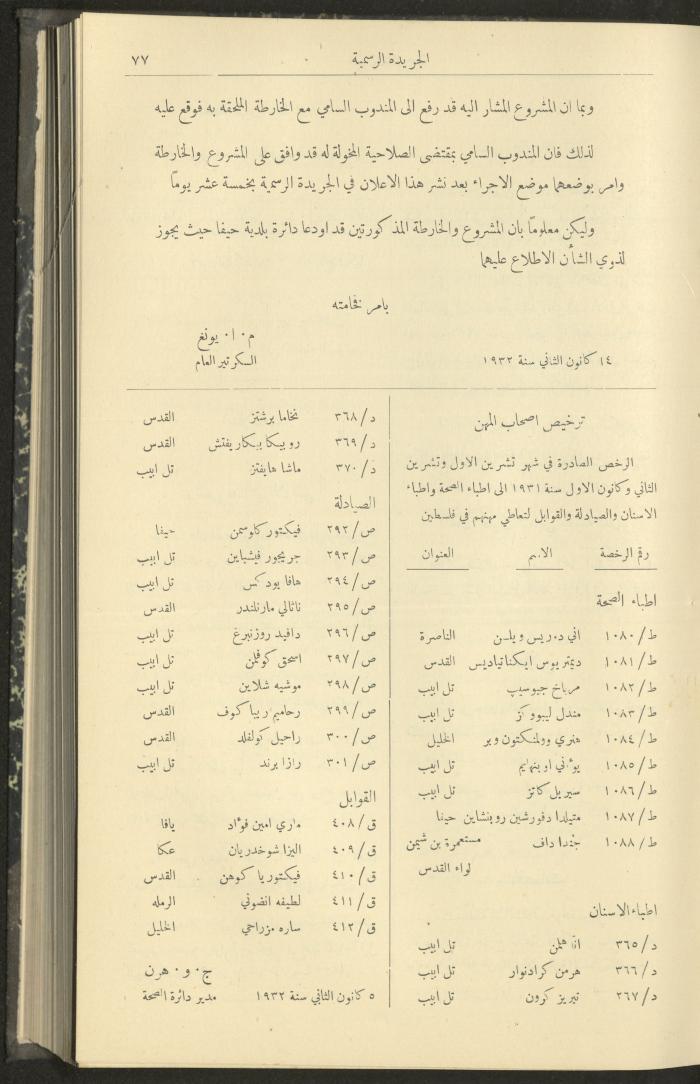 الجريدة الرسمية
٧٧
وبما ان المشروع المشار اليه قد رفع الى المندوب السامي مع الخارطة الملحقة به فوقع عليه
لذلك فان المندوب السامي بمقتضى الصلاحية المخولة له قد وافق على المشروع والخارطة
وامر بوضعهما موضع الاجراء بعد نشر هذا الاعلان في الجريدة الرسمية بخمسة عشر يوماً
وليكن معلوماً بان المشروع والخارطة المذكورتين قد اودعا دائرة بلدية حيفا حيث يجوز
لذوي الشأن الاطلاع عليهما
بامر فخامته
م٠ ا٠ يونغ
١٤ كانون الثاني سنة ١٩٣٢ السكرتير العام
ترخيص اصحاب المهن
الرخص الصادرة في شهر تشرين الاول وتشرين
الثاني وكانون الاول سنة ١٩٣١ الى اطباء الصحة واطباء
الاسنان والصيادلة والقوابل لتعاطي مهنهم في فلسطين
رقم الرخصة الاسم العنوان
اطباء الصحة
ط/١٠٨٠ اني دوريس ويلسن الناصرة
ط/١٠٨١ ديمتريوس ايكناتياديس القدس
ط/١٠٨٢ مرباخ جيوسيپ تل ابيب
ط/١٠٨٣ مندل ليبووكز تل ابيب
ط/١٠٨٤ هنري وولمنكتون وبر الخليل
ط/١٠٨٥ يوني اوبنهايم تل ابيب
ط/١٠٨٦ سيريل كاتز تل ابيب
ط/١٠٨٧ متيلدا دفورشين روبنشاين حيفا
ط/١٠٨٨ جندا داف مستعمرة بن شيمن
لواء القدس
اطباء الاسنان
د/٣٦٥ انا هلمن تل ابيب
د/٣٦٦ هرمن كرادنوار تل ابيب
د/٢٦٧ تيريز كرون تل ابيب
د/٣٦٨ نخاما برشتز القدس
د/٣٦٩ روبيكا بيكاريفتش القدس
د/٣٧٠ ماشا هايفتز تل ابيب
الصيادلة
ص/٢٩٢ فيكتور كلوسمن حيفا
ص/٢٩٣ جريجور فيشباين تل ابيب
ص/٢٩٤ هافا يودكس تل ابيب
ص/٢٩٥ ناتالي مارنلندر القدس
ص/٢٩٦ دافيد روزنبرغ تل ابيب
ص/٢٩٧ اسحق كوفلن تل ابيب
ص/٢٩٨ موشيه شلاين تل ابيب
ص/٢٩٩ رحاميم ريباكوف القدس
ص/٣٠٠ راحيل كولفلد القدس
ص/٣٠١ رازا برند تل ابيب
القوابل
ق/٤٠٨ ماري امين فؤاد يافا
ق/٤٠٩ اليزا شوخدريان عكا
ق/٤١٠ فيكتوريا كوهن القدس
ق/٤١١ لطيفه انضوني الرمله
ق/٤١٢ ساره مزراحي الخليل
ج٠ و٠ هرن
٥ كانون الثاني سنة ١٩٣٢ مدير دائرة الصحة